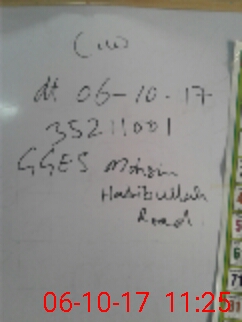 dt 06-10-17
35211001
GGES Mohsin
Habibullah
Road.
06-10-17 11:25